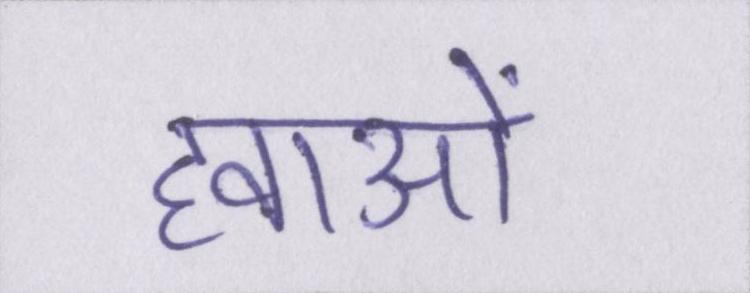 हवाओं